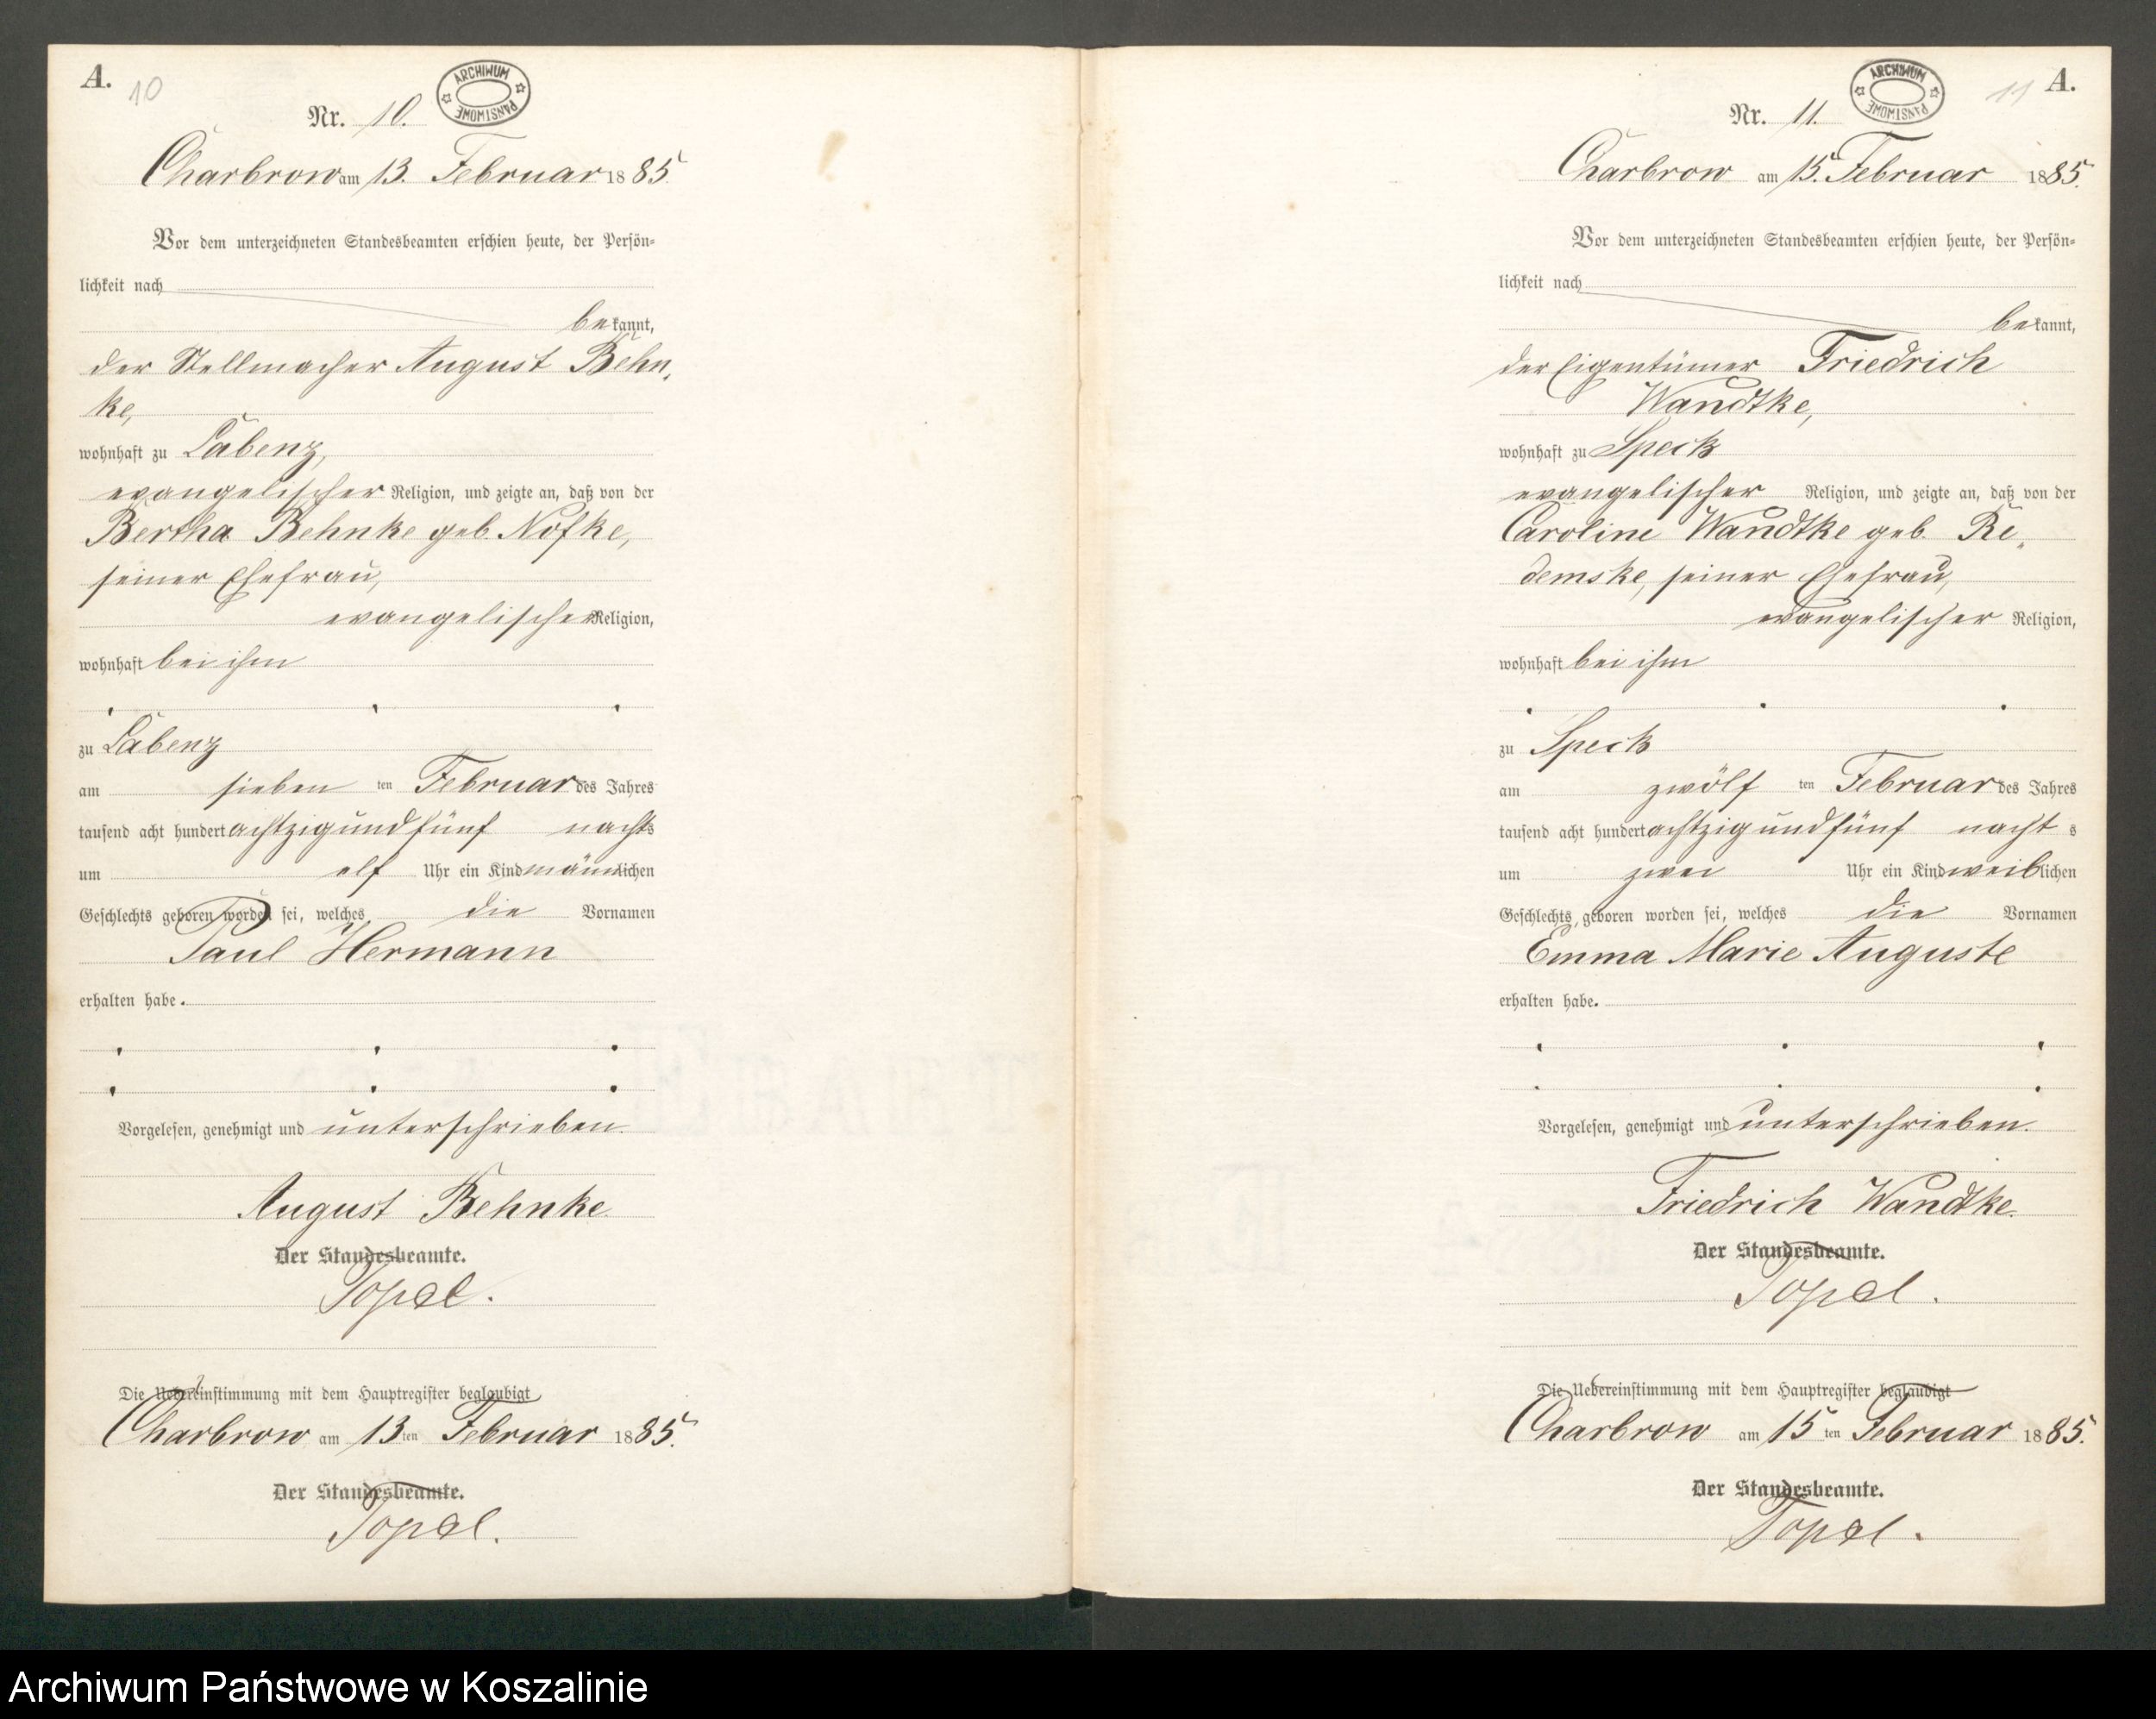 A.
10
Nr. 10.
ARCHIWUM PAŃSTWOWE
Charbrow am 13. Februar 1885.
Vor dem unterzeichneten Standesbeamten erschien heute, der Persön-
lichkeit nach
bekannt,
der Stellmacher August Behn-
ke,
wohnhaft zu Labenz,
evangelischer Religion, und zeigte an, daß von der
Bertha Behnke geb. Nofke,
seiner Ehefrau,
evangelischer Religion,
wohnhaft bei ihm
zu Labenz
am sieben ten Februar des Jahres
tausend acht hundert achtzig und fünf nachts
um elf Uhr ein Kind männlichen
Geschlechts geboren worden sei, welches die Vornamen
Paul Hermann
erhalten habe.
Vorgelesen, genehmigt und unterschrieben.
August Behnke
Der Standesbeamte.
Topel.
Die Uebereinstimmung mit dem Hauptregister beglaubigt
Charbrow am 13 ten Februar 1885.
Der Standesbeamte.
Topel.
11 A.
Nr. 11.
ARCHIWUM PAŃSTWOWE
Charbrow am 15. Februar 1885.
Vor dem unterzeichneten Standesbeamten erschien heute, der Persön-
lichkeit nach
bekannt,
der Eigentümer Friedrich
Wandtke,
wohnhaft zu Speck
evangelischer Religion, und zeigte an, daß von der
Caroline Wandtke geb. Re-
demske, seiner Ehefrau,
evangelischer Religion,
wohnhaft bei ihm
zu Speck
am zwölf ten Februar des Jahres
tausend acht hundert achtzig und fünf nacht s
um zwei Uhr ein Kind weiblichen
Geschlechts geboren worden sei, welches die Vornamen
Emma Marie Auguste
erhalten habe.
Vorgelesen, genehmigt und unterschrieben.
Friedrich Wandtke.
Der Standesbeamte.
Topel.
Die Uebereinstimmung mit dem Hauptregister beglaubigt
Charbrow am 15 ten Februar 1885.
Der Standesbeamte.
Topel.
Archiwum Państwowe w Koszalinie